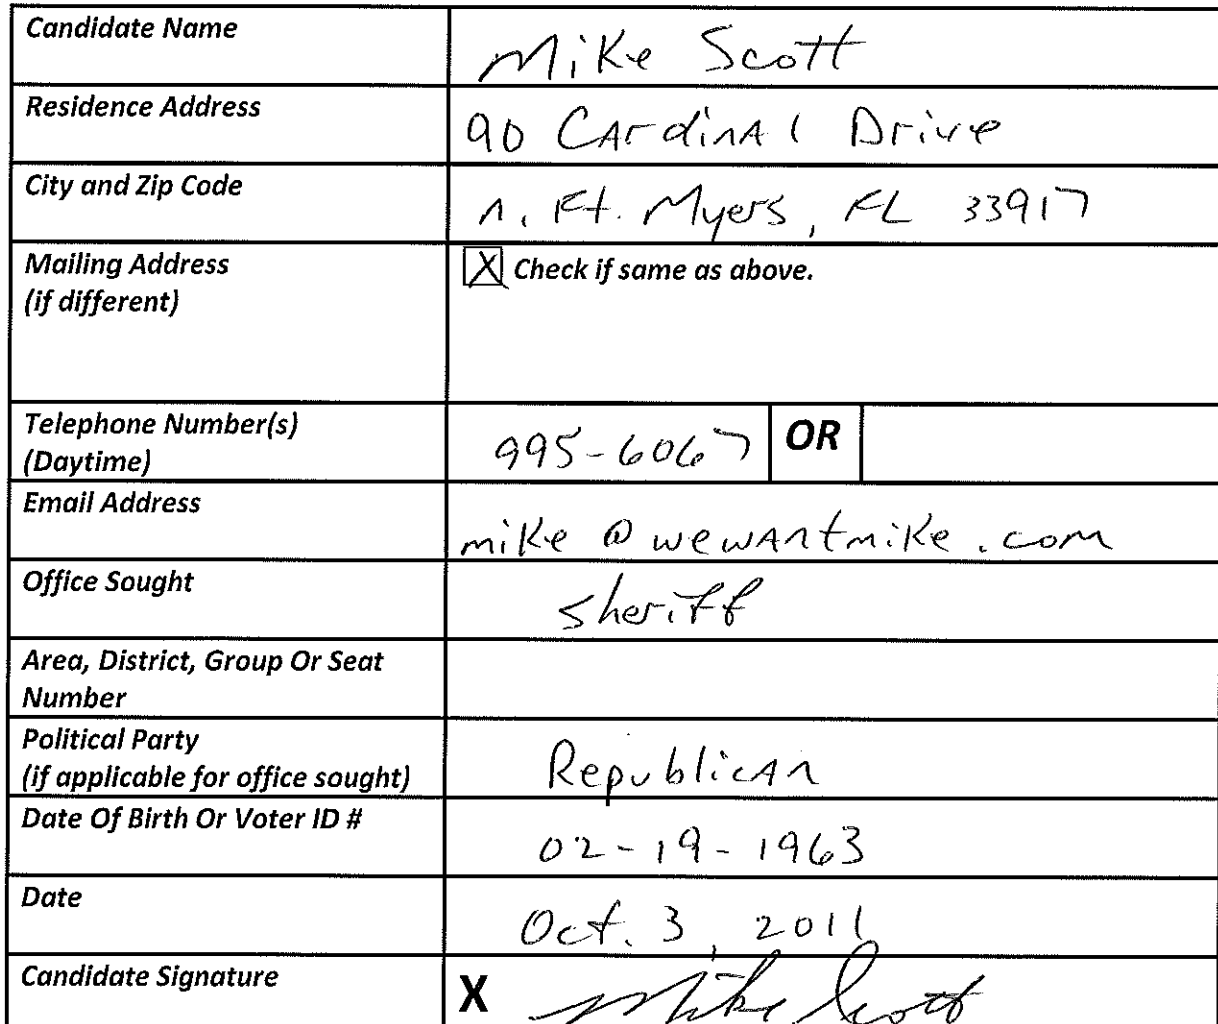 Candidate Name Mike Scott
Residence Address 90 Cardinal Drive
City and Zip Code N. Ft. Myers, FL 33917
Mailing Address
(if different)
X Check if same as above.
Telephone Number(s)
(Daytime)
995-6067 OR
Email Address mike@wewantmike.com
Office Sought Sheriff
Area, District, Group Or Seat
Number
Political Party
(if applicable for office sought)
Republican
Date Of Birth Or Voter ID # 02-19-1963
Date Oct. 3, 2011
Candidate Signature X Mike Scott